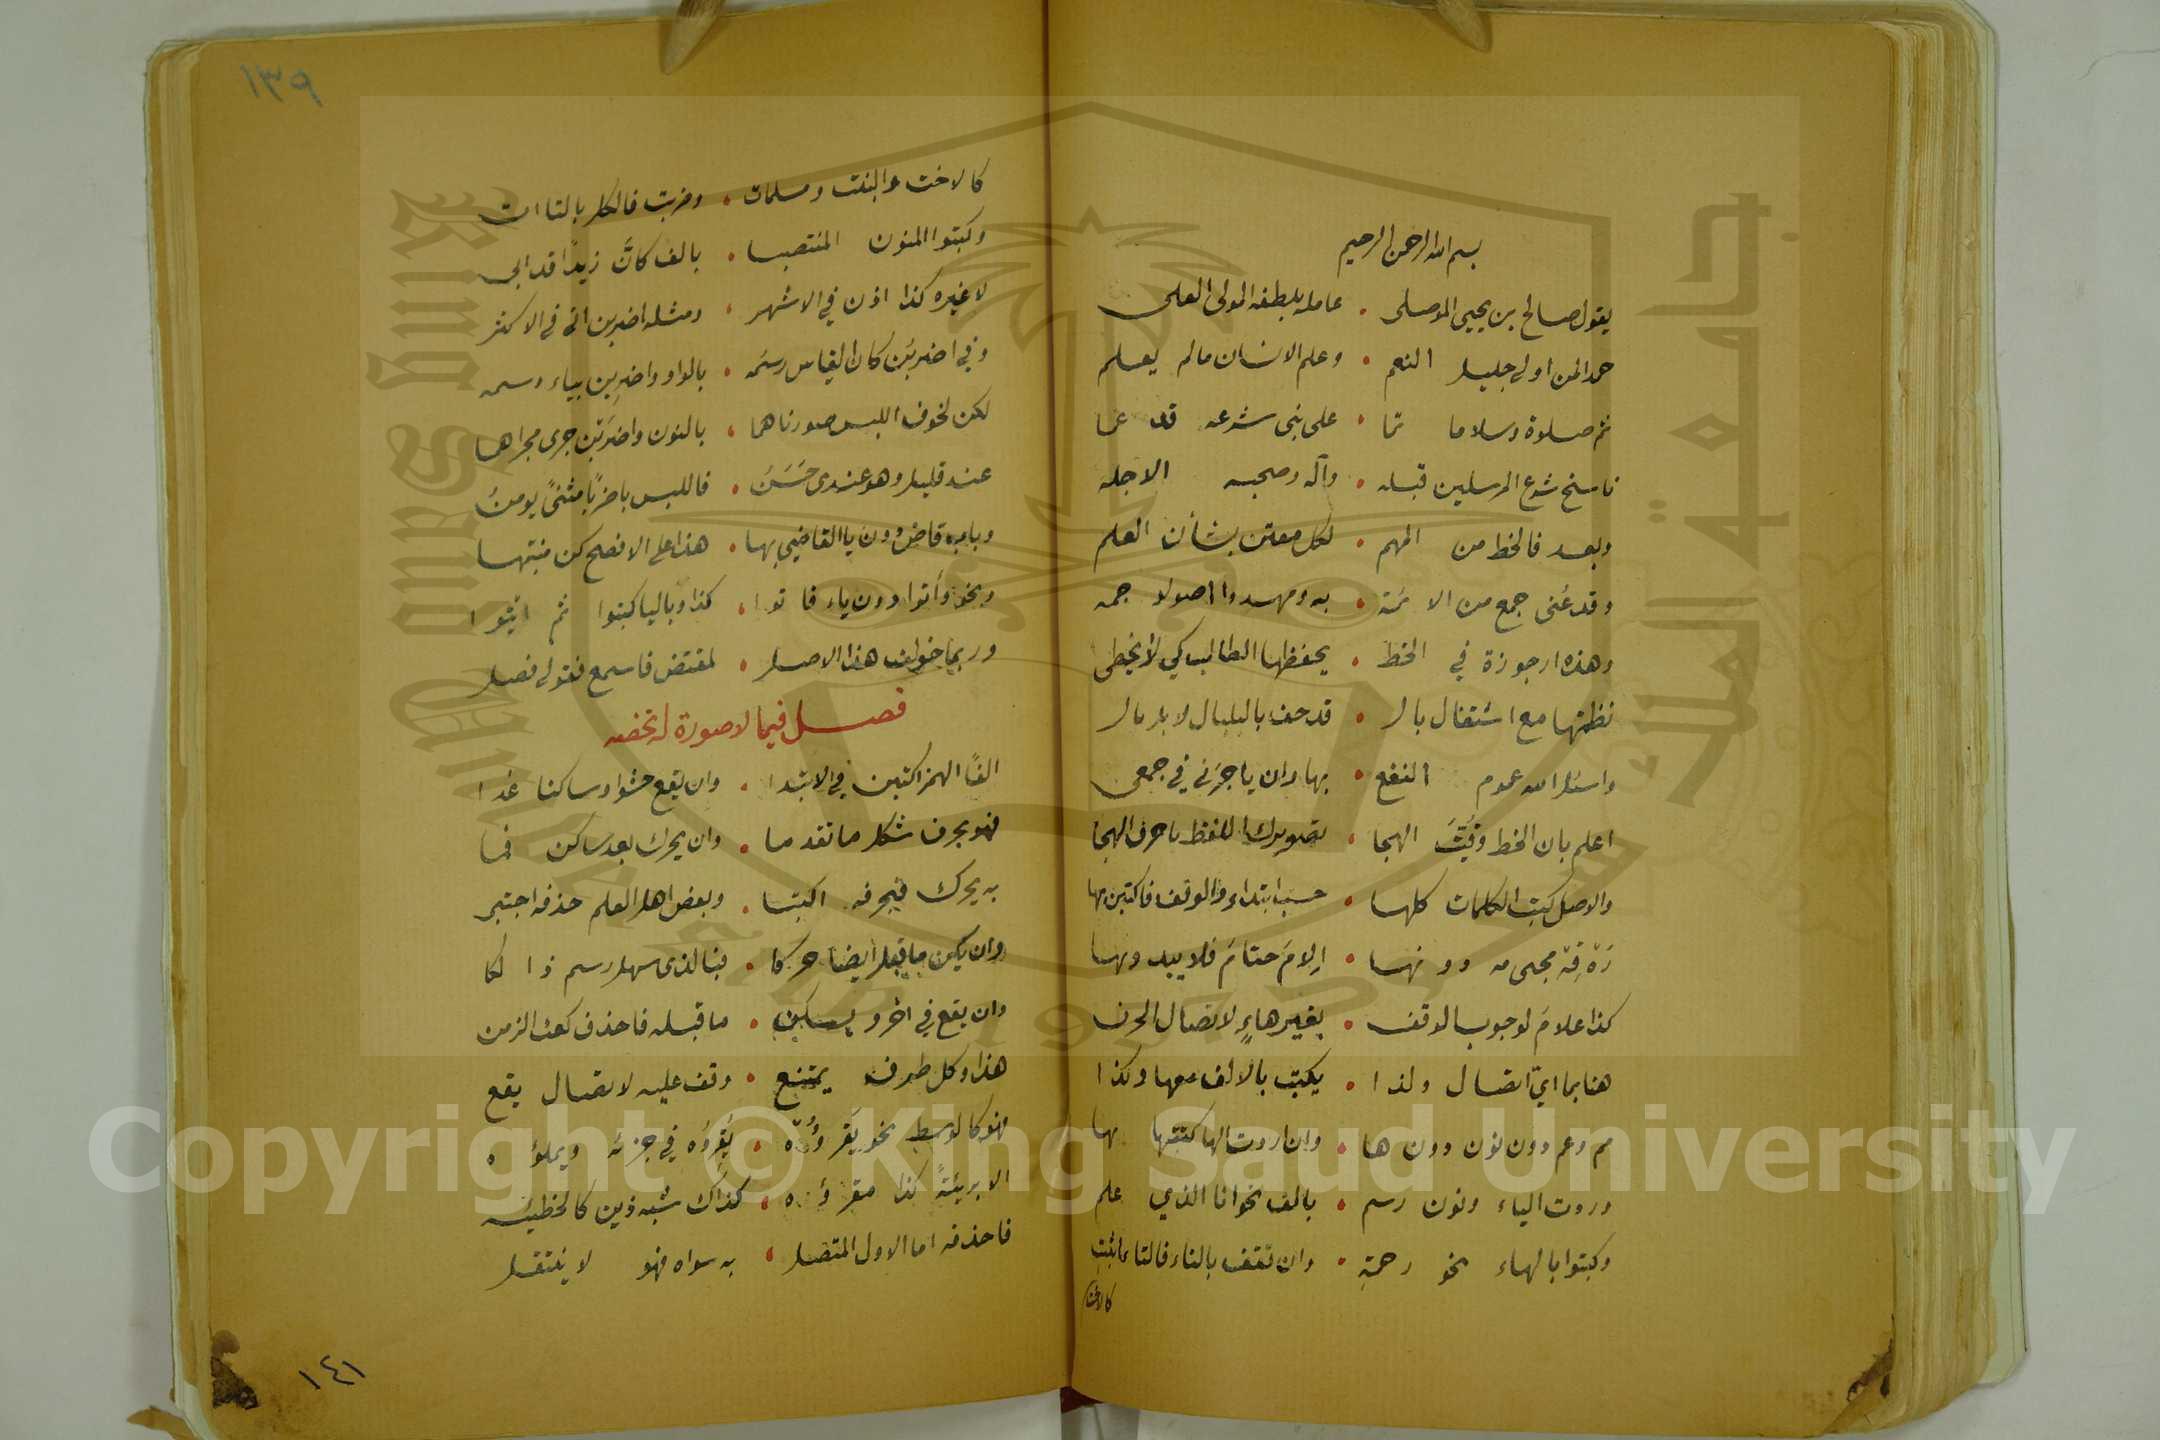 بسم الله الرحمن الرحيم
يقول صالح بن يحيى الموصلى . عامله بلطفه المولى العلى
حمدا لمن اولى جليل النعم . وعلم الانسان مالم يعلم
ثم صلوة وسلاما تما . على نبى شرعه قد عما
ناسخ شرع المرسلين قبله . وآله وصحبه الاجله
وبعد فالخط من المهم . لكل معتن بشأن العلم
وقد عُنى جمع من الائمة . به ومهدوا اصولا جمه
وهذه ارجوزة في الخط . يحفظها الطالب كي لا يخطى
نظمتها مع اشتغال بال . قد حف بالبلبال لا بل بال
واسئل الله عموم النفع . بها وان ياجرني في جمعى
اعلم بان الخط وقيت الهجا . تصويرك اللفظ باحرف الهجا
والاصل كتب الكلمات كلها . حسب ابتداء والوقف فاكتبن بها
رَهْ قِهْ مجىء مه دونها . اِلامَ حتامَ فلا يبدو بها
كذا علامَ لوجوب الوقف . بغير هاءٍ لاتصال الحرف
هنا بما اىّ اتصال ولذا . يكتب بالالف معها وكذا
مم وعم دون نون دون ها . وان اردت الها كتبتها بها
وردت الياء ونون رسم . بالف نحو انا الذي علم
وكتبوا بالهاء نحو رحمةِ . وان تقف بالتاء فالتاء اثبتِ
كالاخت
١٣٩
كالاخت والبنت ومسلمات . وضربت فالكل بالتاات
وكتبوا المنون المنتصبا . بالف كانَّ زيدًا قد ابى
لا غيره كذا اذن في الاشهر . ومثله اضربن اتى في الاكثر
وفي اضربُن كان القياس رسمَه . بالواو واضرِبن بياء وسمه
لكن لخوف اللبس صورناهما . بالنون واضرَبن جرى مجراهما
عند قليل وهو عندى حَسَنُ . فاللبس باضربًا مثنىً يومنُ
وباب قاض دون يا القاضي بها . هذا على الافصح كن منتبها
ونحو وأتوا دون ياء فاتوا . كذا وباليا كتبوا ثم ائتوا
وربما خولف هذا الاصل . لمقتض فاسمع فقولى فصل
فصل فيما لا صورة له تخصه
الفًا الهمز اكتبن في الابتدا . وان يقع حشوا وساكنا غدا
فهو بحرف شكل ما تقدما . وان يحرك بعد ساكن فما
به يحرك فبحرفه اكتبا . وبعض اهل العلم حذفه اجتبى
وان يكن ما قبل ايضا حركا . فبالذى سهل رسم ذا لكا
وان يقع في اخر و يسكن . ما قبله فاحذف كعبء الزمن
هذا وكل طرف يمتنع . وقف عليه لاتصال يقع
فهو كالوسط نحو يقرؤه . يُقرِؤُه في جزئه ويملؤه
الا بريئةً كذا مقروءه . كذاك شبه ذين كالخطيئه
فاحذفه اما الاول المتصل . به سواه فهو لا ينتقل
١٤١
Copyright © King Saud University
جامعة الملك سعود
King Saud University
1957